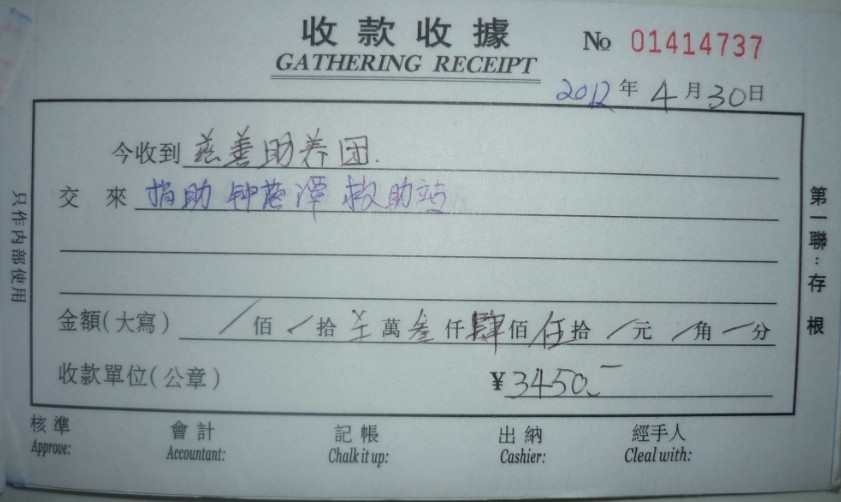 收款收據
GATHERING RECEIPT
№ 01414737
2012年4月30日
今收到 慈善助养团.
交來 捐助 钟落潭 救助站
金額(大寫) / 佰 / 拾 萬 叁仟肆佰伍拾 / 元 / 角 一 分
收款單位(公章) ¥3450.—
核準 會計 記帳 出納 經手人
Approve: Accountant: Chalk it up: Cashier: Cleal with:
只作内部使用
第一聯:存根